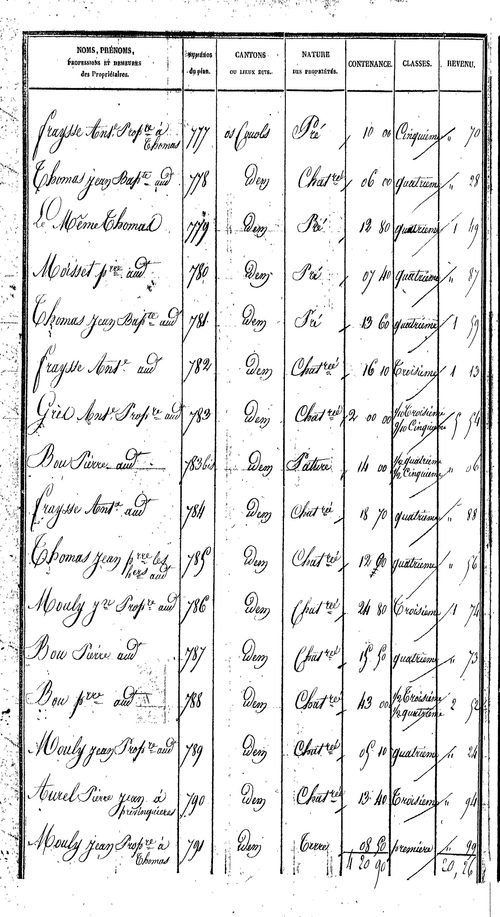 NOMS, PRÉNOMS, PROFESSIONS ET DEMEURES des Propriétaires. | NUMÉROS du plan. | CANTONS OU LIEUX DITS. | NATURE DES PROPRIÉTÉS. | CONTENANCE. | CLASSES. | REVENU.
fraysse Ant.e Prop.re à Thomas 777 os Couols Pré 10 00 Cinquième " 70
Thomas jean Bap.te aud 778 idem Chat.rée 06 00 quatrième " 28
Le Même Thomas 779 idem Pré 12 80 quatrième 1 49
Moisset p.rre aud 780 idem Pré 07 40 quatrième " 87
Thomas Jean Bap.te aud 781 idem Pré 13 60 quatrième 1 59
fraysse Ant.e aud 782 idem Chat.rée 16 10 Troisième 1 13
Grèl Ant.e Prop.re aud 783 idem Chat.rée 2 00 00 Troisième Cinquième 5 54
Bou Pierre aud 783 bis idem Pature 14 00 1/2 quatrième 1/2 Cinquième " 06
fraysse Ant.e aud 784 idem Chat.rée 18 70 quatrième " 88
Thomas jean p.rre les hers aud 785 idem Chat.rée 12 00 quatrième " 56
Mouly j.n Prop.re aud 786 idem Chat.rée 24 80 Troisième 1 74
Bou Pierre aud 787 idem Chat.rée 15 50 quatrième " 73
Bou p.rre aud 788 idem Chat.rée 43 00 1/2 Troisième 1/2 quatrième 2 52
Mouly jean Prop.re aud 789 idem Chat.rée 05 10 quatrième " 24
Aurel Pierre jean à prévinquières 790 idem Chat.rée 13 40 Troisième " 94
Mouly jean Prop.re à Thomas 791 idem Terre 08 50 première " 99
4 20 90 20, 26